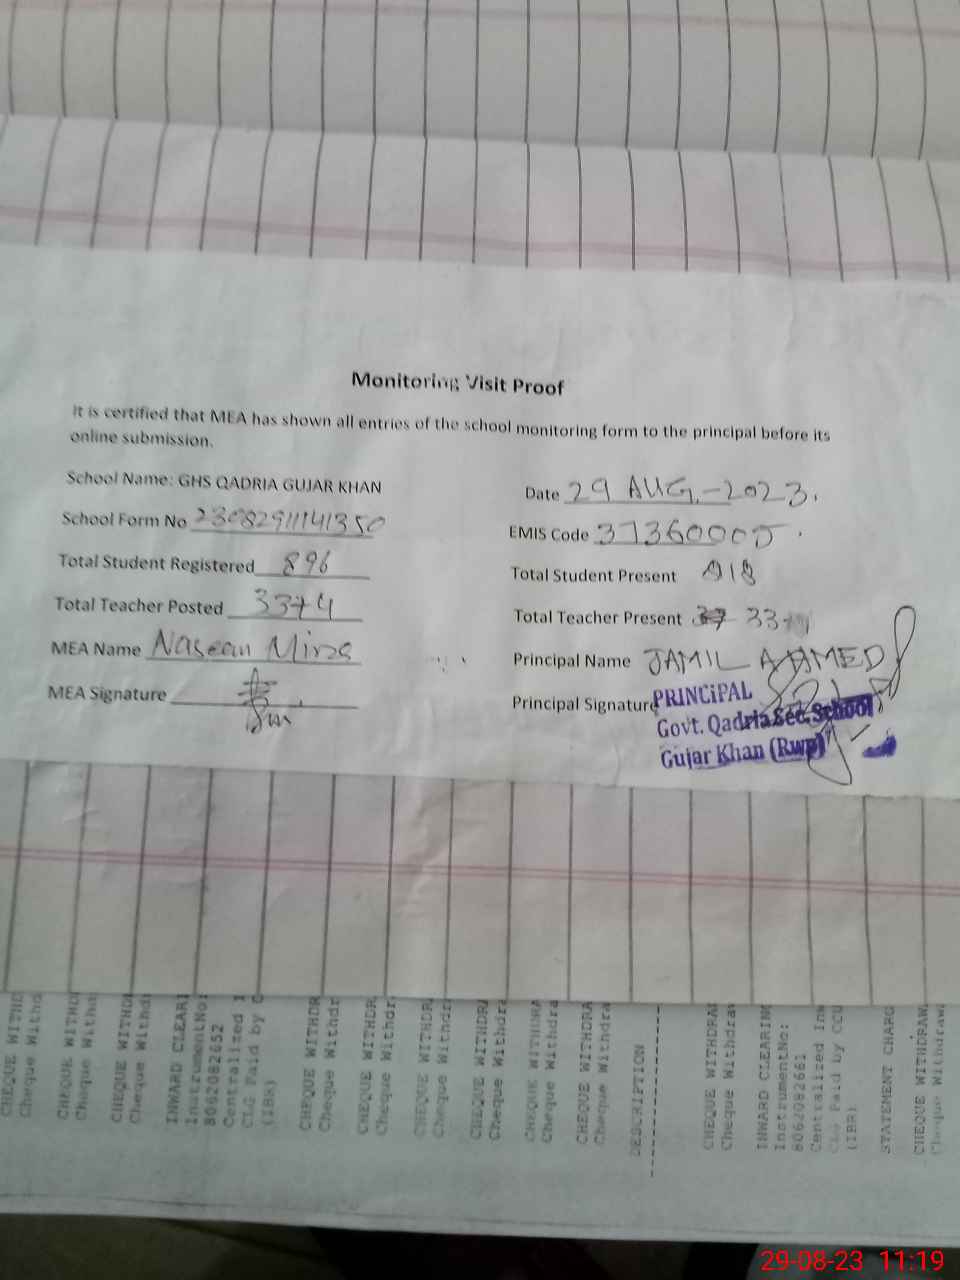 Monitoring Visit Proof
It is certified that MEA has shown all entries of the school monitoring form to the principal before its
online submission.
School Name: GHS QADRIA GUJAR KHAN
Date 29 AUG.-2023.
School Form No 2308291141350
EMIS Code 37360005
Total Student Registered 896
Total Student Present 818
Total Teacher Posted 33+4
Total Teacher Present 33+
MEA Name Naseem Mirza
Principal Name JAMIL AHMED
MEA Signature
Principal Signature
PRINCiPAL
Govt. Qadria Sec. School
Gujar Khan (Rwp)
CHEQUE WITHD
Cheque Withd
CHEQUE WITHD
Cheque Withd
CHEQUE WITHD
Cheque Withd
INWARD CLEARI
InstrumentNo:
8062082652
Centralized I
CLG Paid by C
(IBR)
CHEQUE WITHDR
Cheque Withdr
CHEQUE WITHDR
Cheque Withdr
CHEQUE WITHDRA
Cheque Withdr
CHEQUE WITHDRA
Cheque Withdra
CHEQUE WITHDRA
Cheque Withdra
CHEQUE WITHDRA
Cheque Withdra
DESCRIPTION
CHEQUE WITHDRA
Cheque Withdraw
INWARD CLEARING
InstrumentNo:
8062082661
Centralized Inw
Paid by CCU
(IBR)
STATEMENT CHARG
CHEQUE WITHDRAW
Cheque Withdraw
29-08-23 11:19